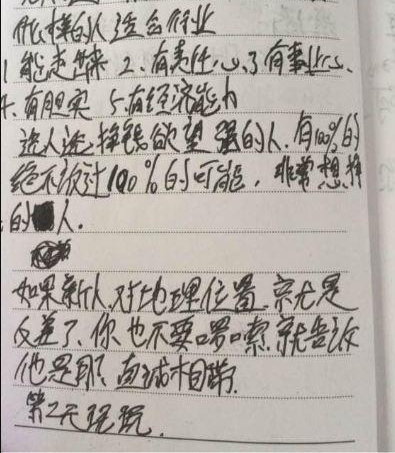 什么样的人适合行业
1 能走出来 2、有责任心、3 有事业心、
4、有胆实 5、有经济能力
选人选挣钱欲望强的人、有100%的
绝不放过100%的可能，非常想挣
的人.
如果新人对地理位置就是
反差了、你也不要啰嗦就告诉
他是那 面试相
第2天玩玩.